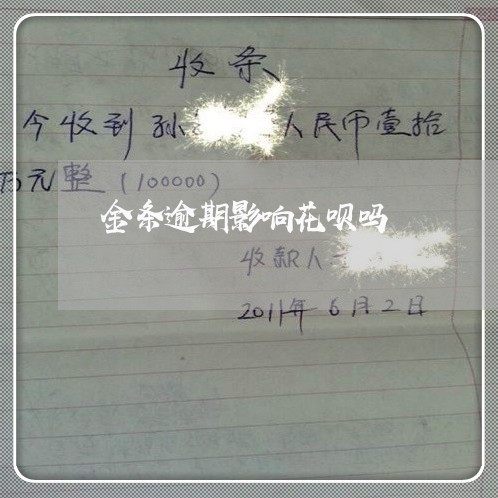 收条
今收到孙 人民币壹拾
万元整（100000）
金条逾期影响花呗吗
收款人
2011年6月2日